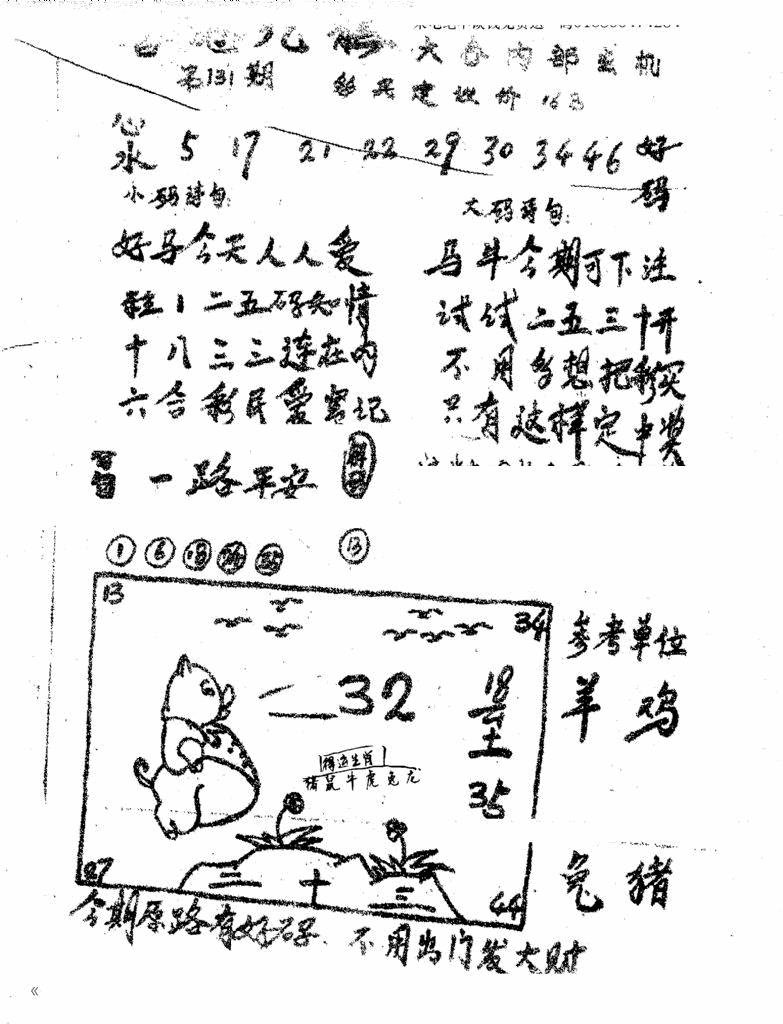 第131期
大 内部玄机
彩民建议价 163
心水 5 17 21 22 29 30 34 46 好码
小码诗句
好马今天人人爱
1二五码知情
十八三三连在内
六合彩民爱密记
大码诗句:
马牛今期可下注
试试二五三十开
不用多想把彩买
只有这样定中奖
一路平安
1 6 18 35 13
13
34
32
18
35
得追生肖
猪鼠牛虎兔龙
27
三 十 三
44
参考单位
羊 鸡
兔 猪
今期原路有好码、不用出门发大财
«